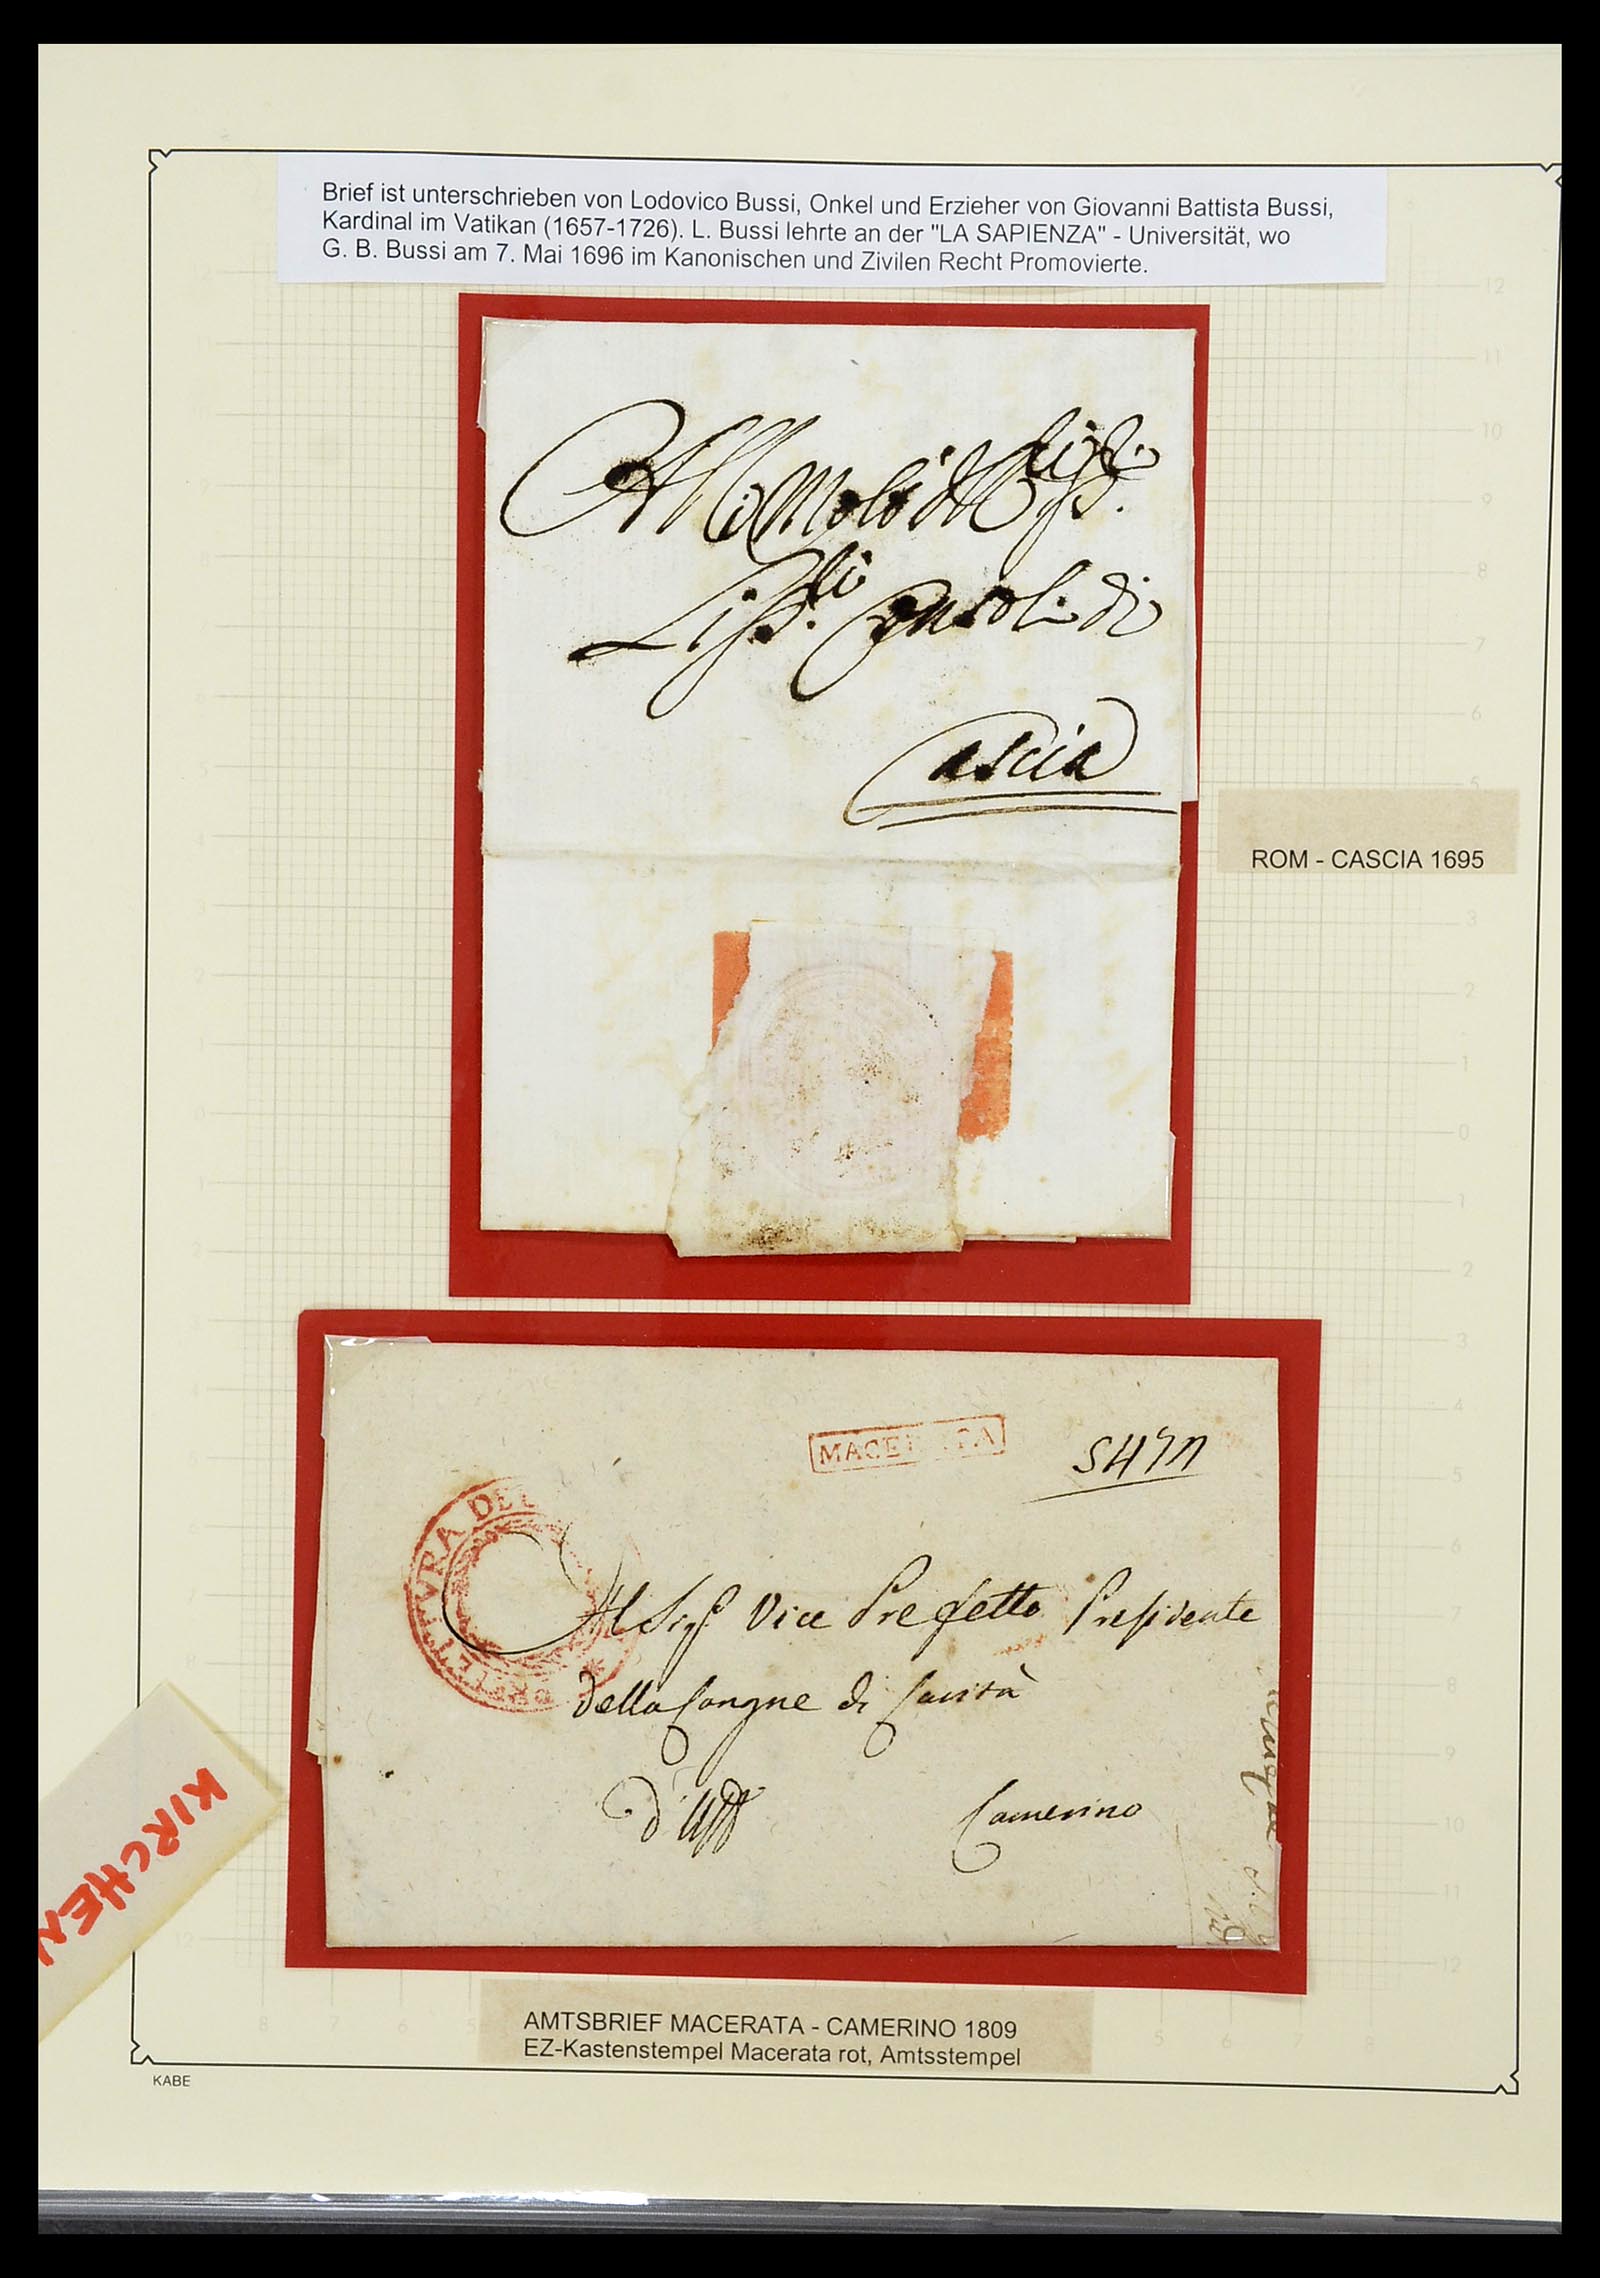 Brief ist unterschrieben von Lodovico Bussi, Onkel und Erzieher von Giovanni Battista Bussi,
Kardinal im Vatikan (1657-1726). L. Bussi lehrte an der "LA SAPIENZA" - Universität, wo
G. B. Bussi am 7. Mai 1696 im Kanonischen und Zivilen Recht Promovierte.
Consoli di
Cascia
ROM - CASCIA 1695
MACE
PREFETTURA DEL
Al Sigr Vice Prefetto Presidente
della Congne di Carità
d'Uff
Camerino
KIRCHEN
AMTSBRIEF MACERATA - CAMERINO 1809
EZ-Kastenstempel Macerata rot, Amtsstempel
KABE